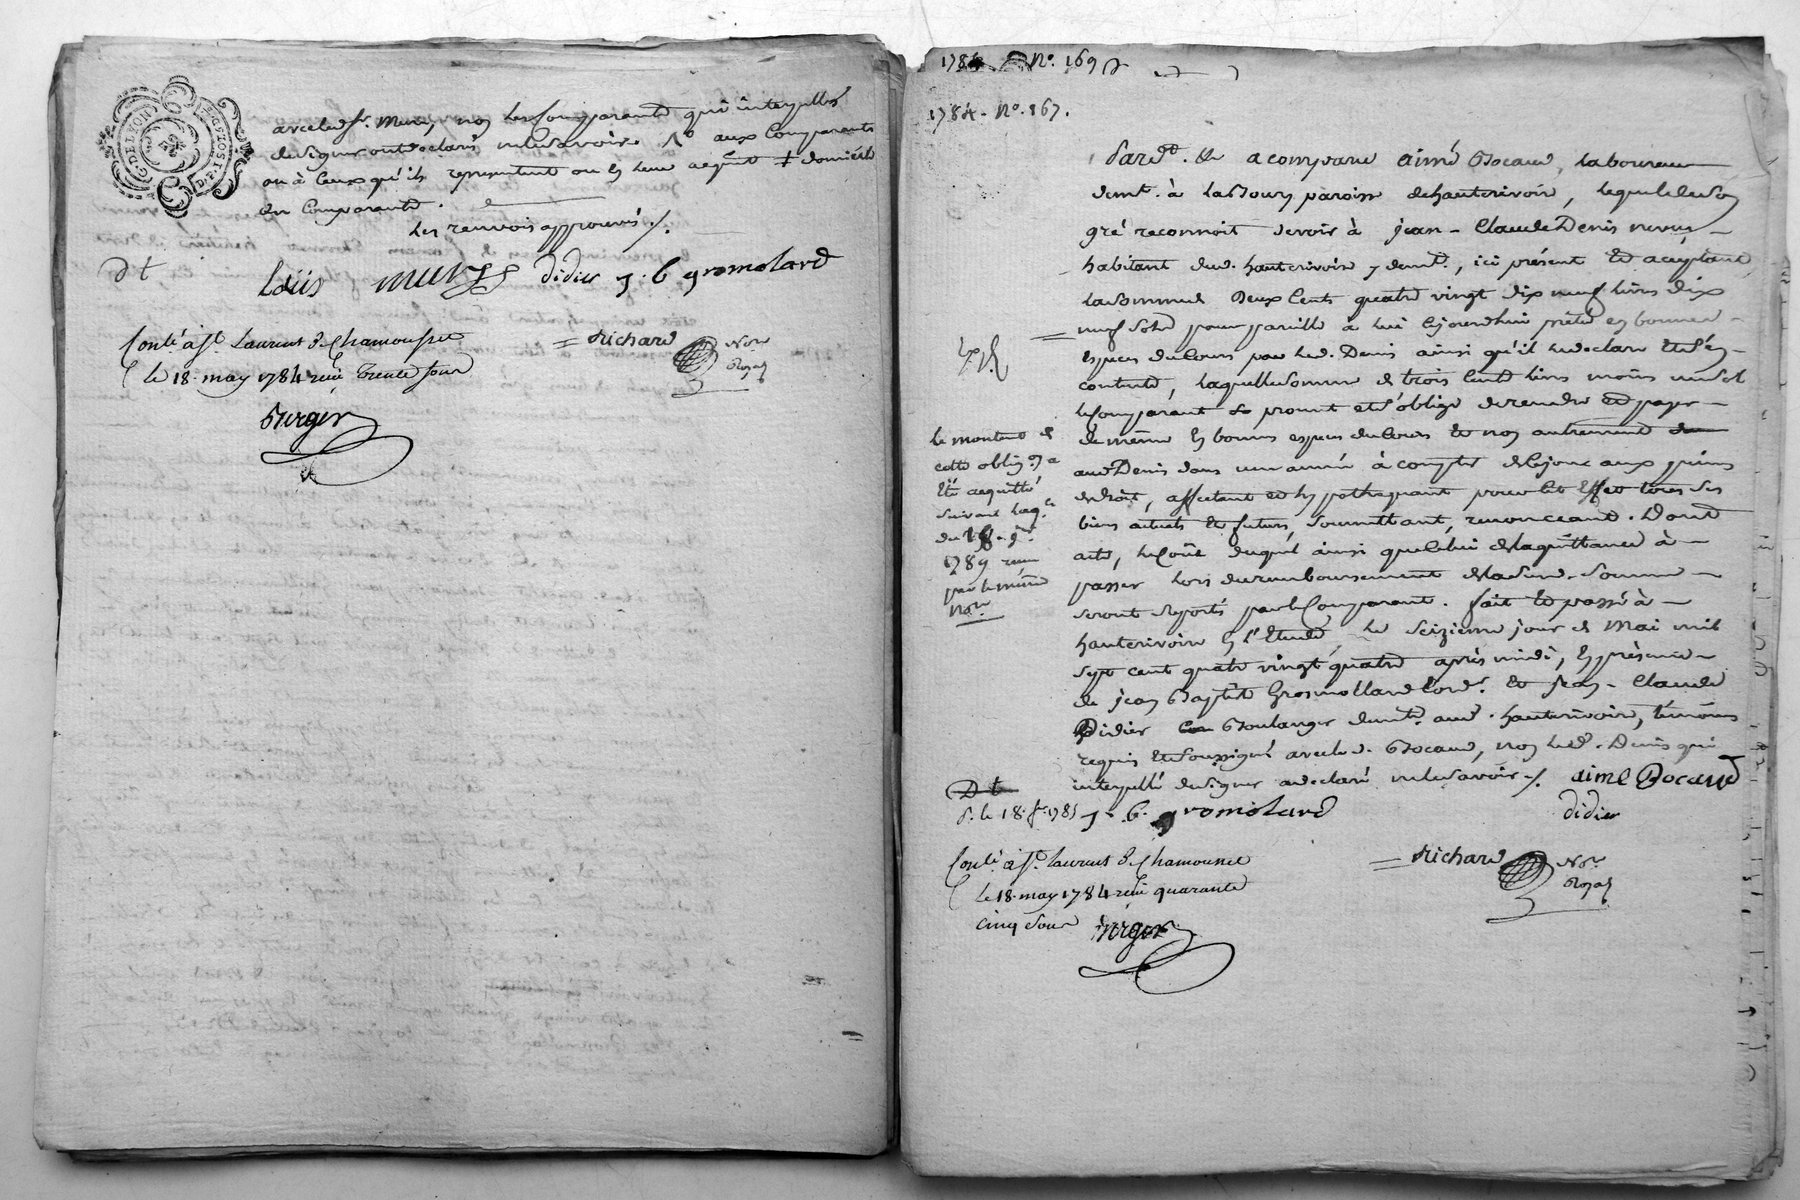 G. DE LYON
avec led. sr. Mure, non les Comparants qui interpellés
de signer ont déclaré ne le savoir. Ss aux Comparants
ou à Ceux qu'ils representent ou en leur acquit ‡ domicile
des Comparants.
les renvois approuvés /.
Dt
Loüis mure didier j. b gromolard
Conlé à st. Laurent d. Chamousset
le 18. may 1784 reçu trente sous
Berger
= Richard
Nore
Royal
1784 No. 169
1784 - No. 867.
Pardt. &c a comparu aimé Bocaud, laboureur
demt. à la Boury paroisse de hauterivoire, lequel de son
gré reconnoit devoir à jean - Claude Denis
habitant dud. hauterivoire y demt., ici présent et aceptant
la somme de Deux Cents quatre vingt dix neuf livres dix
neuf sols pour pareille à lui cejourdhui prêtée en bonnes
espèces du Cours par led. Denis ainsi qu'il le declare et s'en
contente, laquelle somme de trois Cents livres moins un sol
le Comparant se promet et s'oblige de rendre et payer
de même en bonnes espèces du Cours et non autrement
aud Denis dans une année à compter de ce jour aux peines
de droit, affectant et hypothequant pour cet effet tous ses
biens actuels et futurs, soumettant, renonceant. Dont
acte, le Coût duquel ainsi que Celui de la quittance à
passer lors du remboursement de lasusd. somme
seront suportés par le Comparant. fait et passé à
hauterivoire en l'Etude, le seizieme jour de Mai mil
sept cent quatre vingt quatre après midi, en présence
de jean Baptiste Gromollard Cordr. et jean - Claude
Didier Boulanger demts. aud. hauterivoire, témoins
requis et soussignés avec led. Bocaud, non led. Denis qui
interpellé de signer a declaré ne le savoir. /. aimé Bocaud
le montant de
cette oblign. a
Eté acquitté
suivant la qce.
du 18
1789 reçue
par le même
Nore
Dt
d. le 18. 1785 j. b. gromolard
didier
Conlé à st. laurent d. Chamousset
le 18. may 1784 reçu quarante
cinq sous Berger
= Richard
Nore
Royal